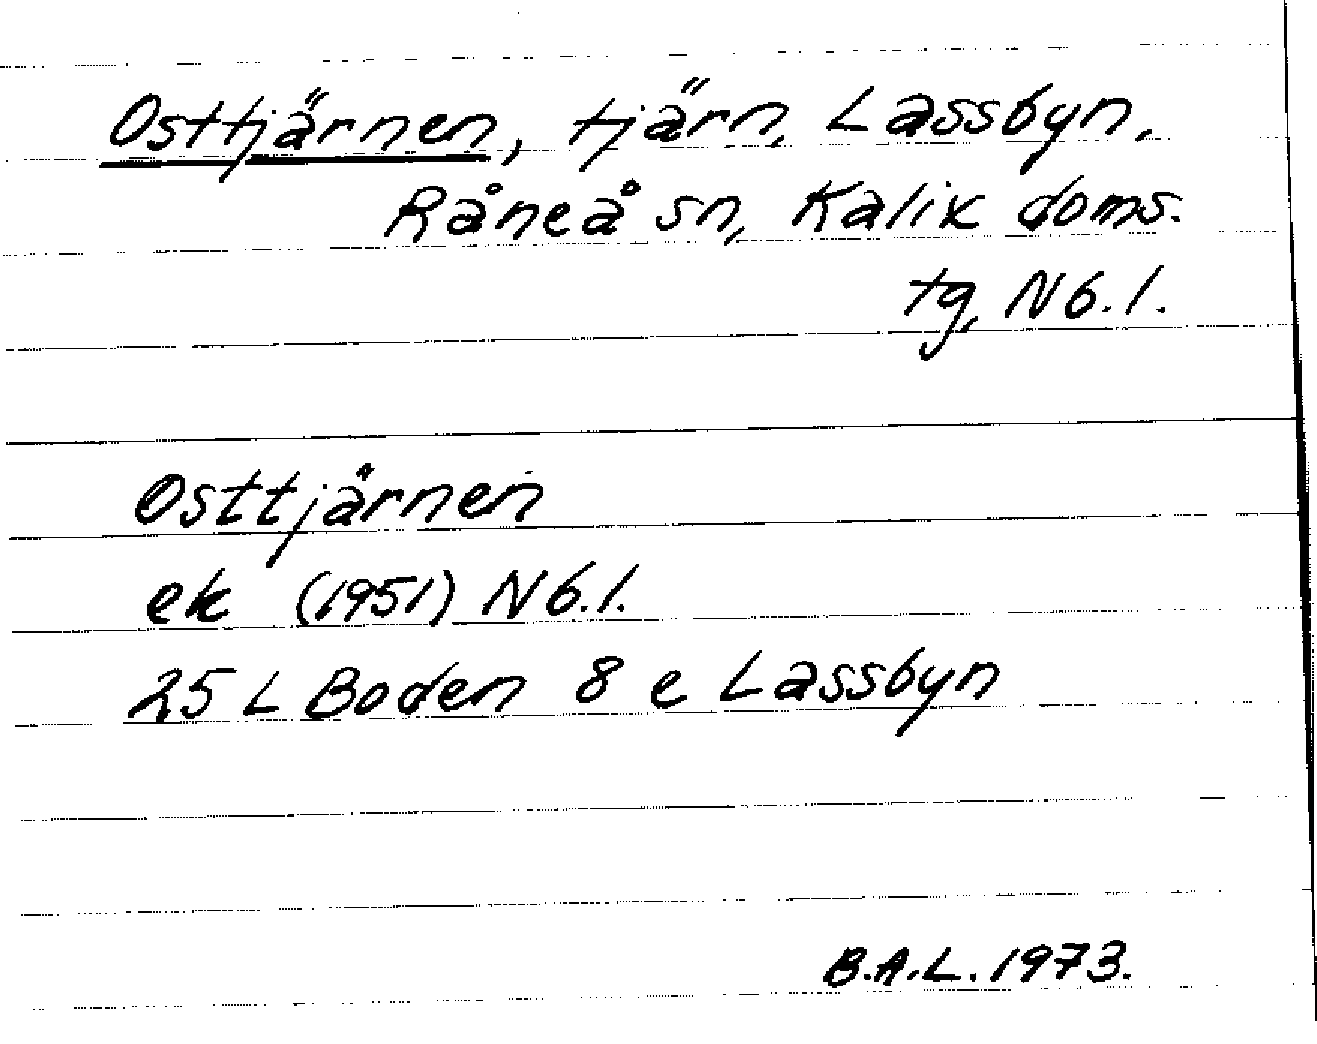 Osttjärnen, tjärn, Lassbyn,
Råneå sn, Kalix doms.
tg, Nb.l.
Osttjärnen
ek (1951) Nb.l.
25 L Boden 8 e Lassbyn
B.A.L. 1973.